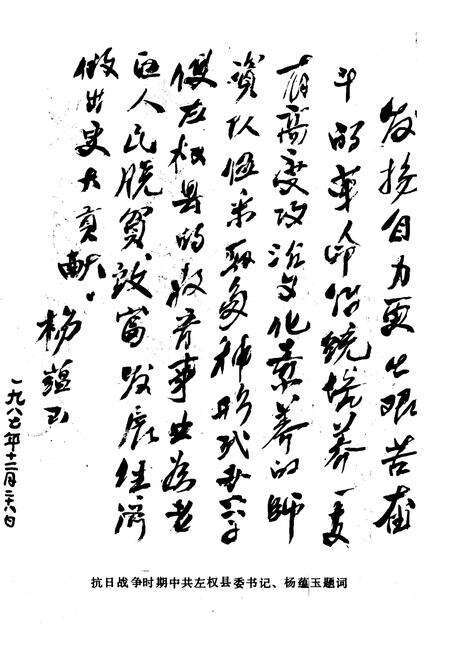 发扬自力更生艰苦奋
斗的革命传统培养一支
有高度政治文化素养的师
资队伍采取多种形式
使左权县的教育事业为老
区人民脱贫致富发展经济
做出更大贡献。
杨蕴玉
一九八七年十二月二六日
抗日战争时期中共左权县委书记、杨蕴玉题词